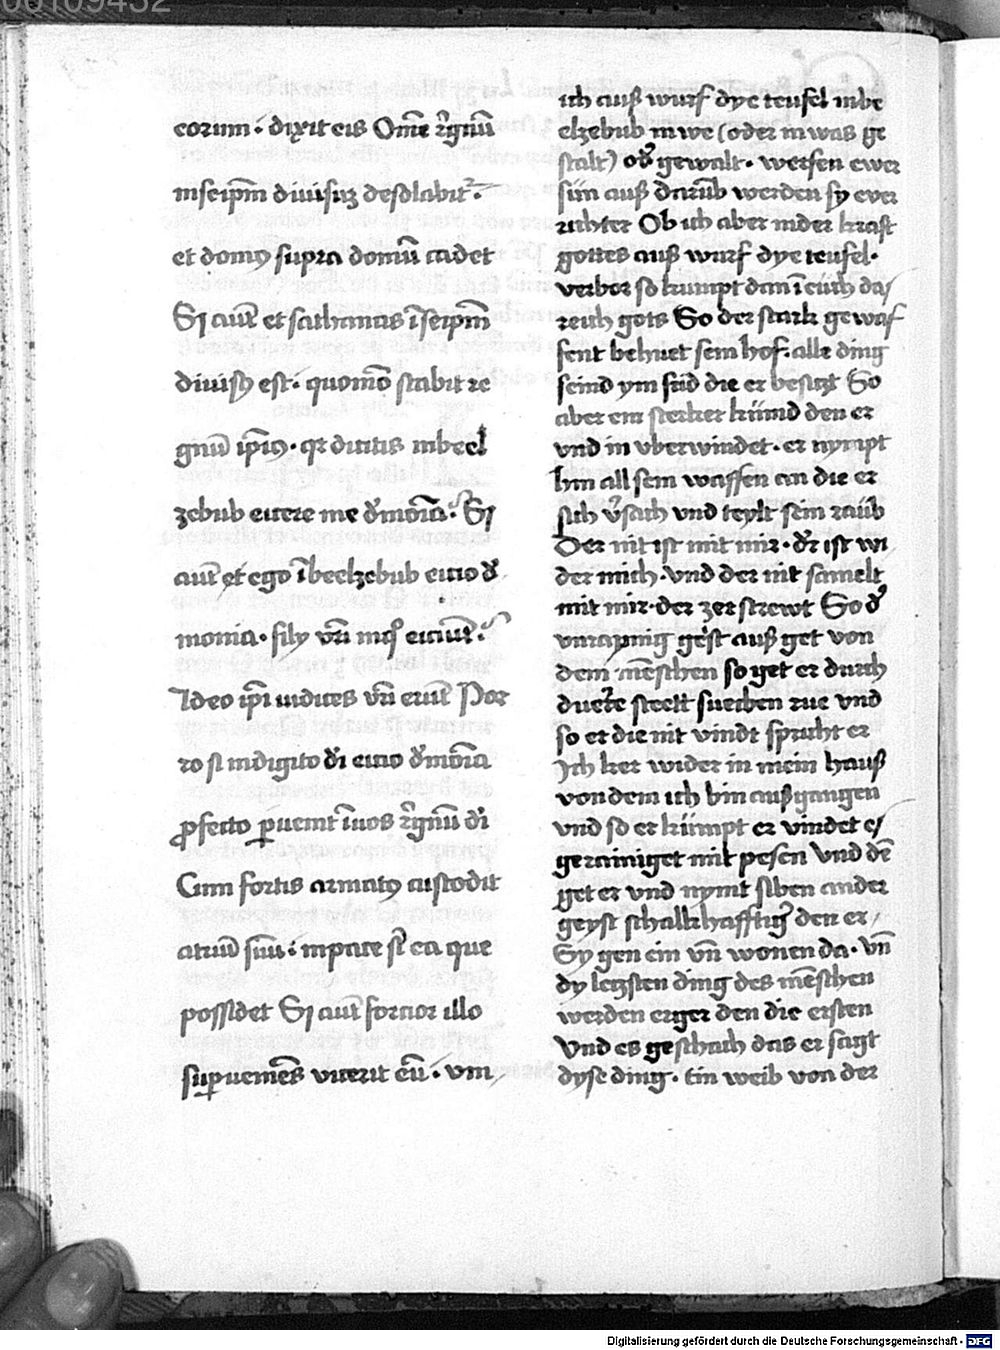 eorum · dixit eis Om̄e r̄gnū
in seip̄m diuisuʒ desolabit᷑
et domꝰ supra domū cadet
Si aut̄ et sathanas ī seip̄m
diuisꝰ est · quomō stabit re
gnū ip̄iꝰ · qr dicitis in beel
zebub eicere me dˀmōia · Si
aut̄ et ego ī beelzebub eicio dˀ
monia · filÿ vr̄i in qͦ eiciūt ·
Ideo ip̄i iudices vr̄i erūt Por
ro si in digito di eicio dˀmōia
ꝓfecto ꝑuenit ī uos r̄gnū di
Cum fortis armatꝰ custodit
atriū suū · in pace st̄ ea que
possidet Si aut̄ forcior illo
suꝑueniēs vicerit eū · vni
ich auß wurf dye teufel in be
elzebub in we (oder in was ge
stalt) odˀ gewalt · werfen ewer
sün auß darūb werden sy ewer
richter Ob ich aber in der kraft
gottes auß wurf dye teufel ·
verbor so kumpt dan ī euch das
reich gots So der stark gewaf
fent behuet sein hof · alle ding
seind ym frid die er besitzt So
aber ein sterker kümd den er
vnd in vberwindet · er nympt
hin all sein waffen an die er
sich vˀsach vnd teylt sein raüb
Der nit ist mit mir · dˀr ist wi
der mich · vnd der nit samelt
mit mir · der zerstrewt So dˀ
vnraynig geist auß get von
dem mēschen so get er durch
duerre stett suechen rue vnd
so er die nit vindt spricht er
Ich ker wider in mein hauß
von dem ich bin außgangen
vnd so er kümpt er vindet es
geraaniget mit pesen vnd dē
get er vnd nymt siben ander
geyst schalkhafftigˀ den er
Sy gen ein vn̄ wonen da · vn̄
dy letzsten ding des mēschen
werden erger den die ersten
Vnd es geschach das er sagt
dyse ding · ein weib von der
Digitalisierung gefördert durch die Deutsche Forschungsgemeinschaft - DFG